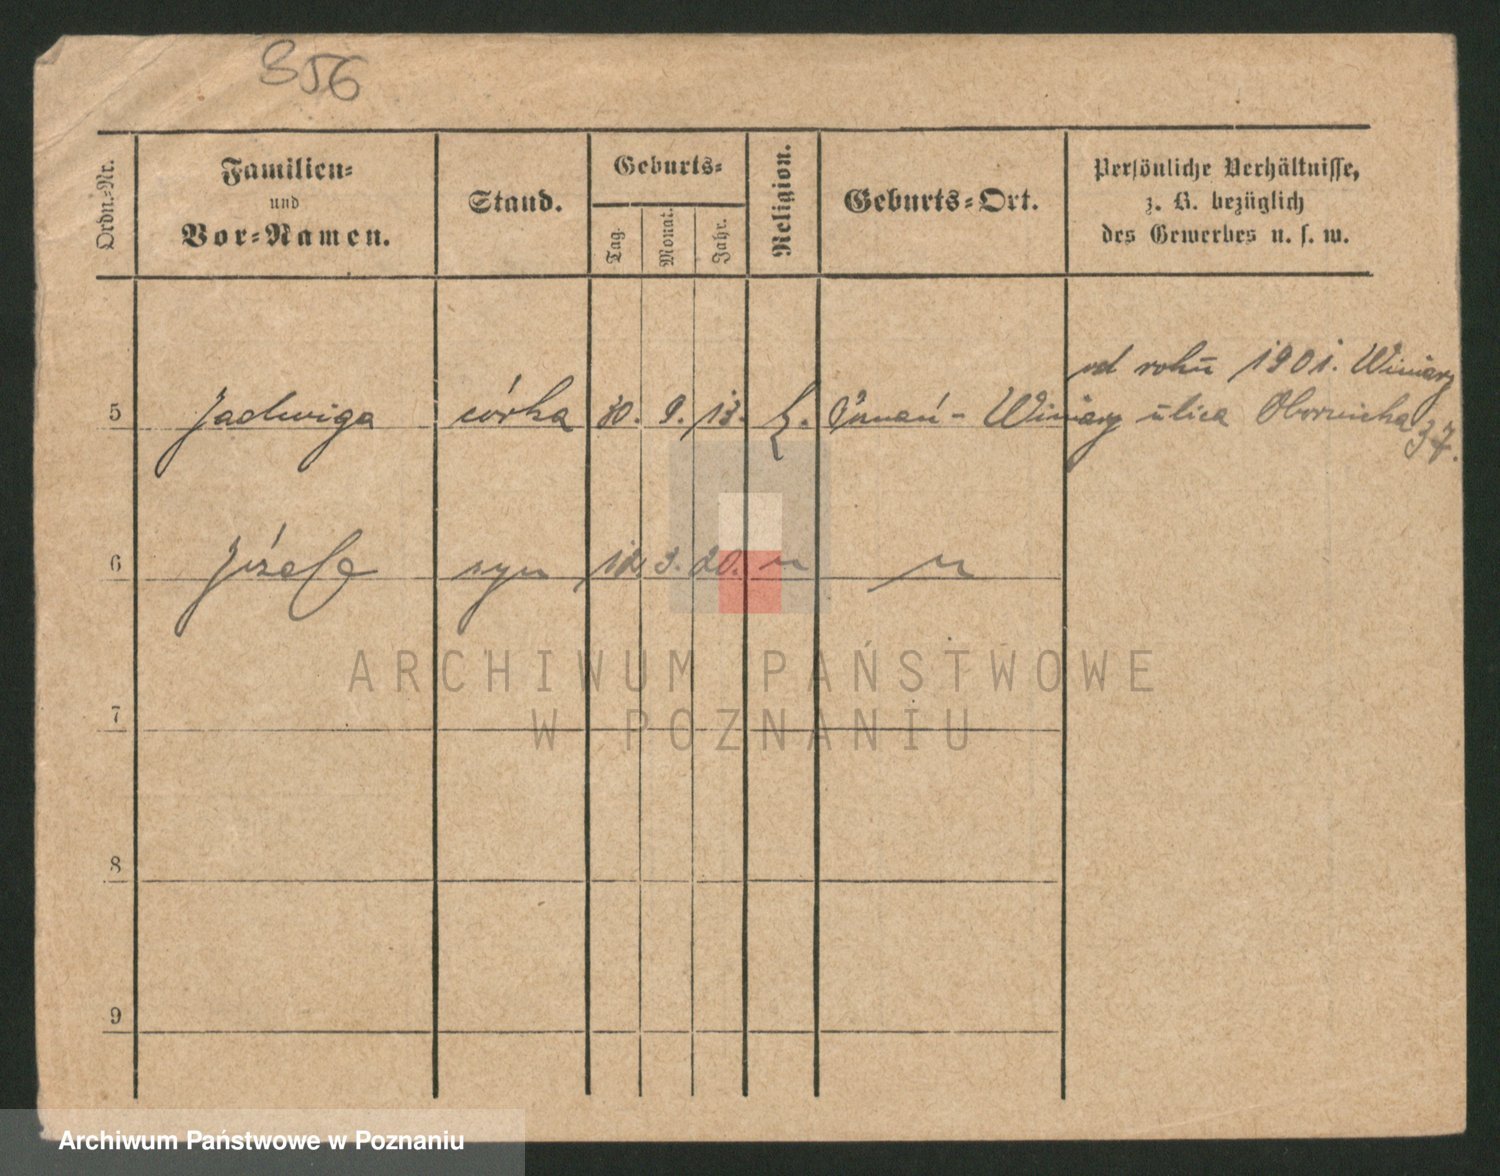 356
Ordn.-Nr.
Familien-
und
Vor-Namen.
Stand.
Geburts-
Tag.
Monat.
Jahr.
Religion.
Geburts-Ort.
Persönliche Verhältnisse,
z. B. bezüglich
des Gewerbes u. s. w.
od roku 1901. Winiary
5 Jadwiga córka 30. 9. 13. k. Poznań - Winiary ulica Obornicka
37.
6 Józef syn 12 3. 20. " "
ARCHIWUM PAŃSTWOWE
W POZNANIU
7
8
9
Archiwum Państwowe w Poznaniu